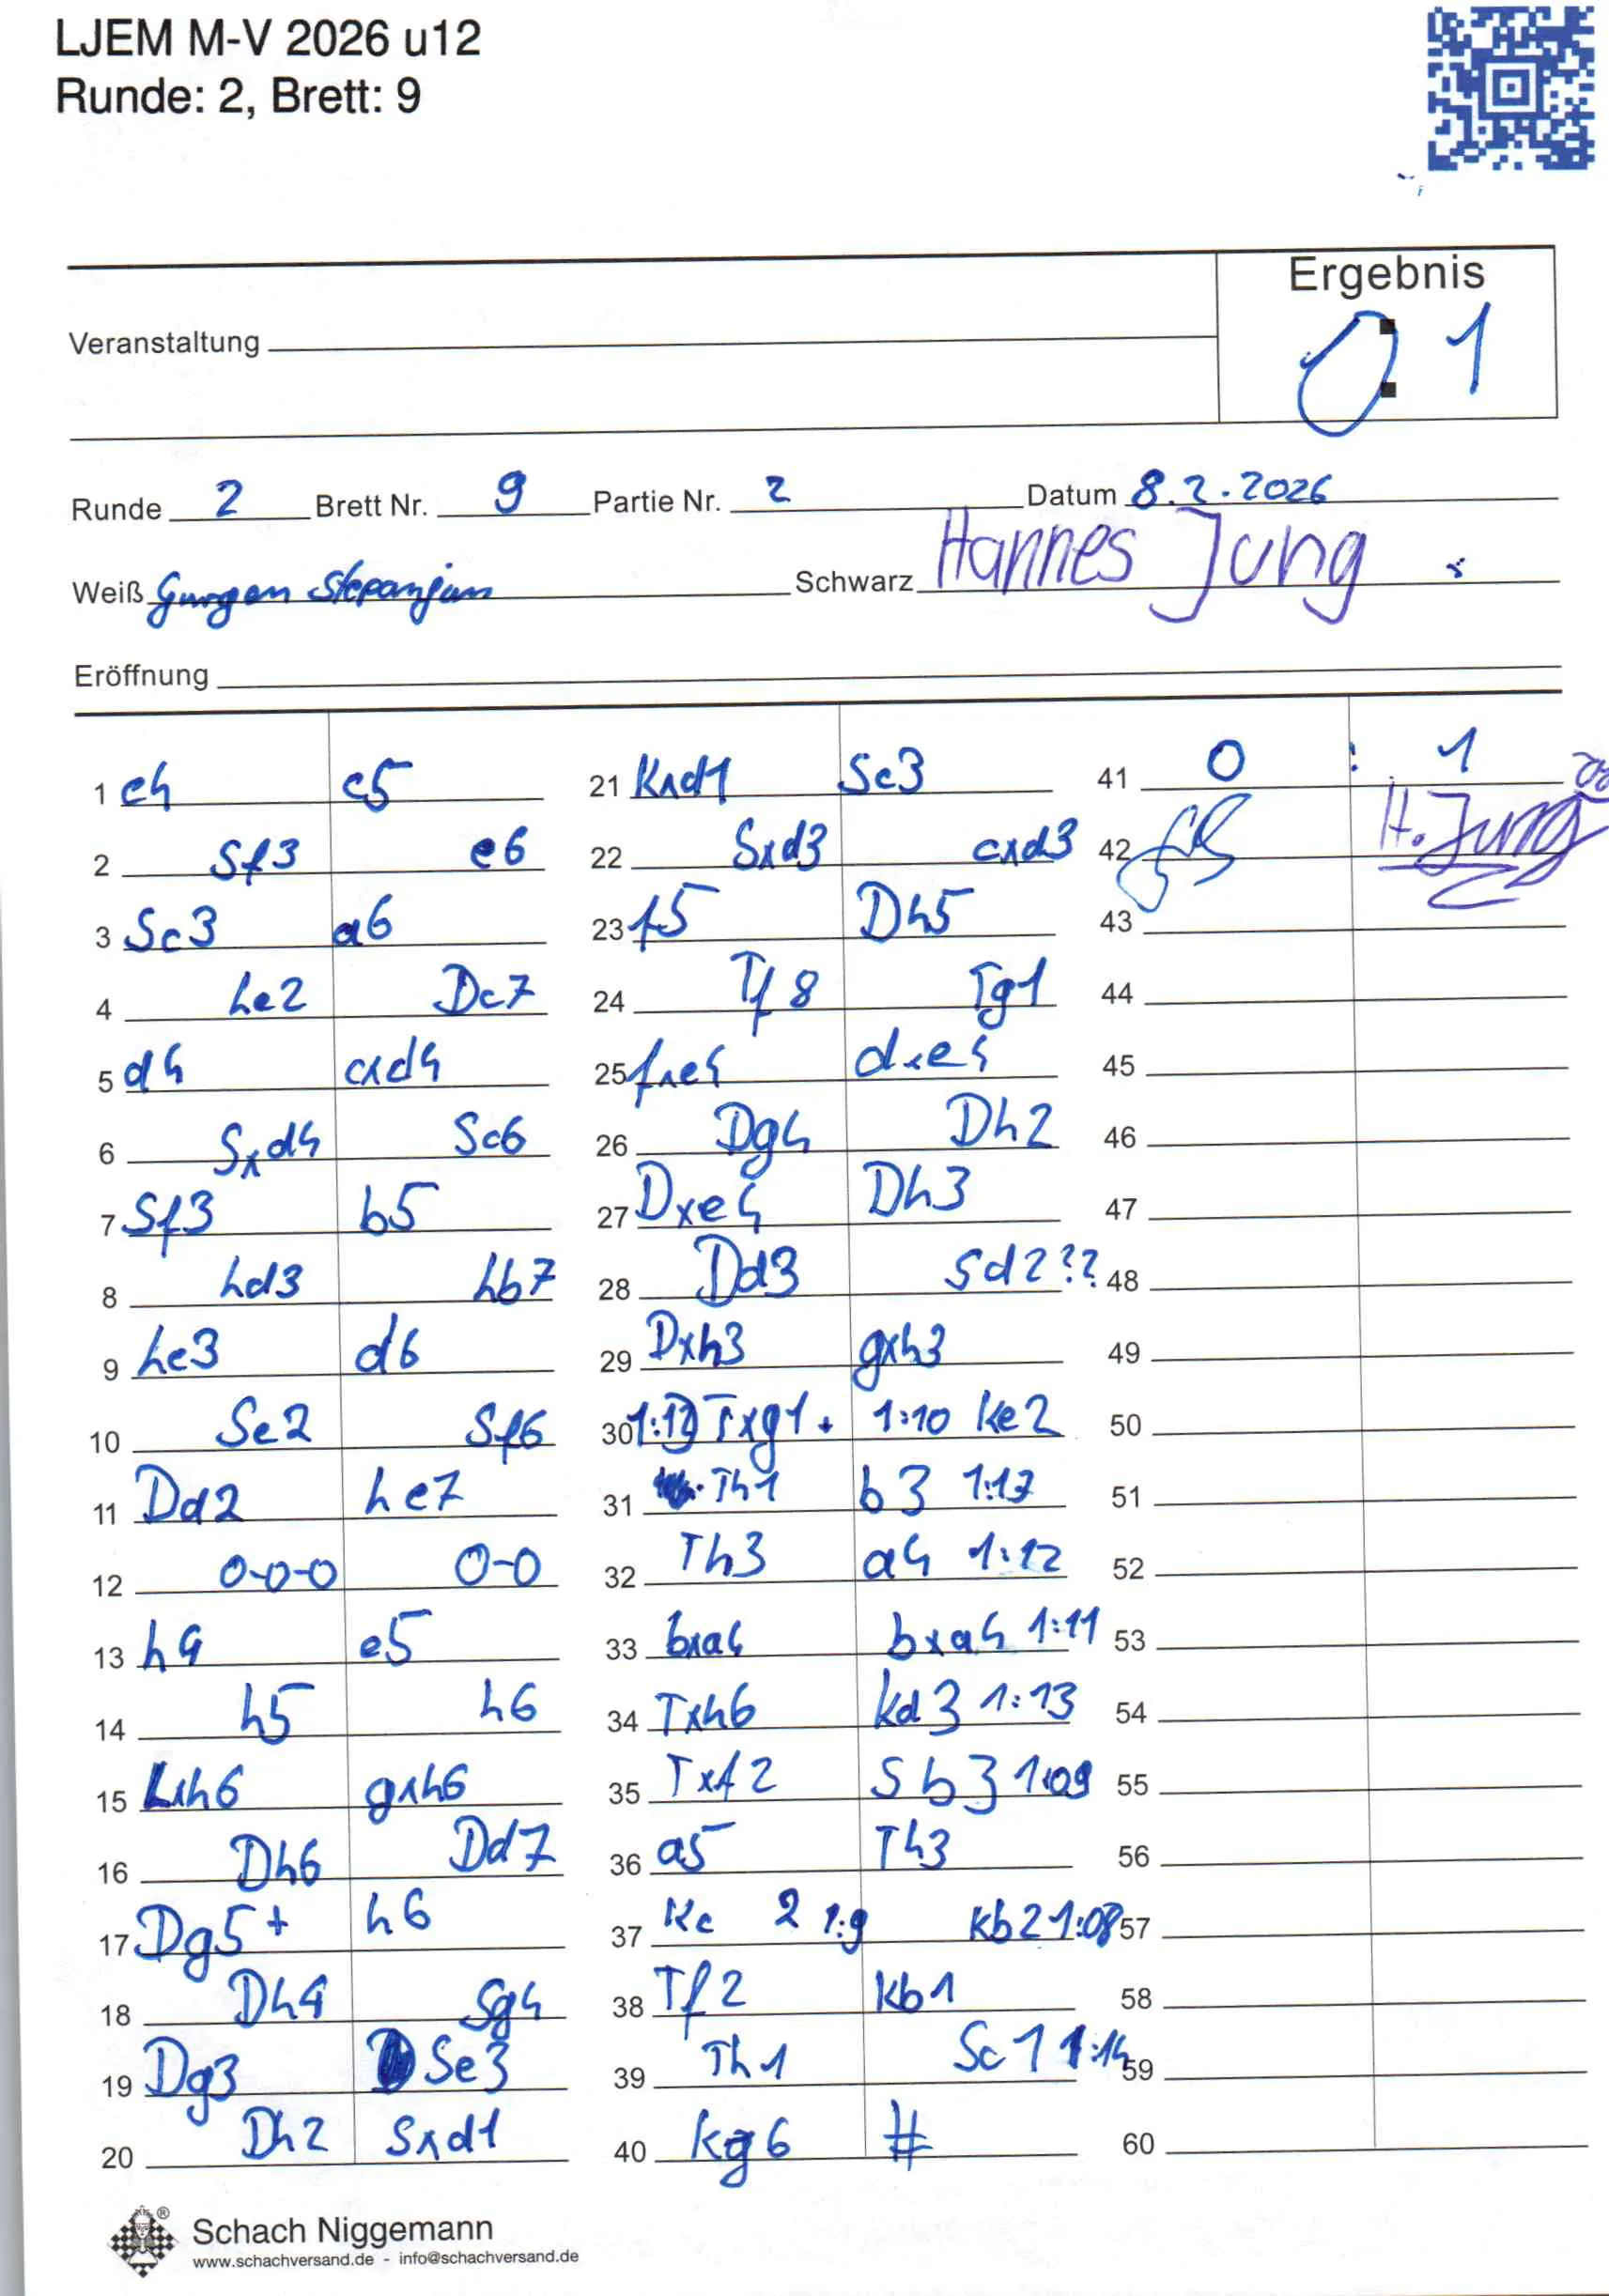 LJEM M-V 2026 u12
Runde: 2, Brett: 9
Ergebnis
Veranstaltung
0 : 1
Runde 2 Brett Nr. 9 Partie Nr. 2 Datum 8.2.2026
Weiß Gurgen Stepanjan Schwarz Hannes Jung
Eröffnung
1 e4 c5
2 Sf3 e6
3 Sc3 a6
4 Le2 Dc7
5 d4 cxd4
6 Sxd4 Sc6
7 Sf3 b5
8 Ld3 Lb7
9 Le3 d6
10 Se2 Sf6
11 Dd2 Le7
12 0-0-0 0-0
13 h4 e5
14 h5 h6
15 Lxh6 gxh6
16 Dh6 Dd7
17 Dg5+ h6
18 Dh4 Sg4
19 Dg3 Se3
20 Dh2 Sxd1
21 Kxd1 Sc3
22 Sxd3 cxd3
23 f5 Dh5
24 Tf8 Tg1
25 fxe4 dxe4
26 Dg4 Dh2
27 Dxe4 Dh3
28 Dd3 Sd2??
29 Dxh3 gxh3
30 1:12 Txg1+ 1:10 Ke2
31 Th1 b3 1:13
32 Th3 a4 1:12
33 bxa4 bxa4 1:11
34 Txh6 Kd3 1:13
35 Txf2 Sb3 1:09
36 a5 Th3
37 Kc 2 1:9 Kb2 1:08
38 Tf2 Kb1
39 Th1 Sc1 1:14
40 Kg6 #
41 0 : 1
42 H. Jung
43
44
45
46
47
48
49
50
51
52
53
54
55
56
57
58
59
60
Schach Niggemann
www.schachversand.de - info@schachversand.de